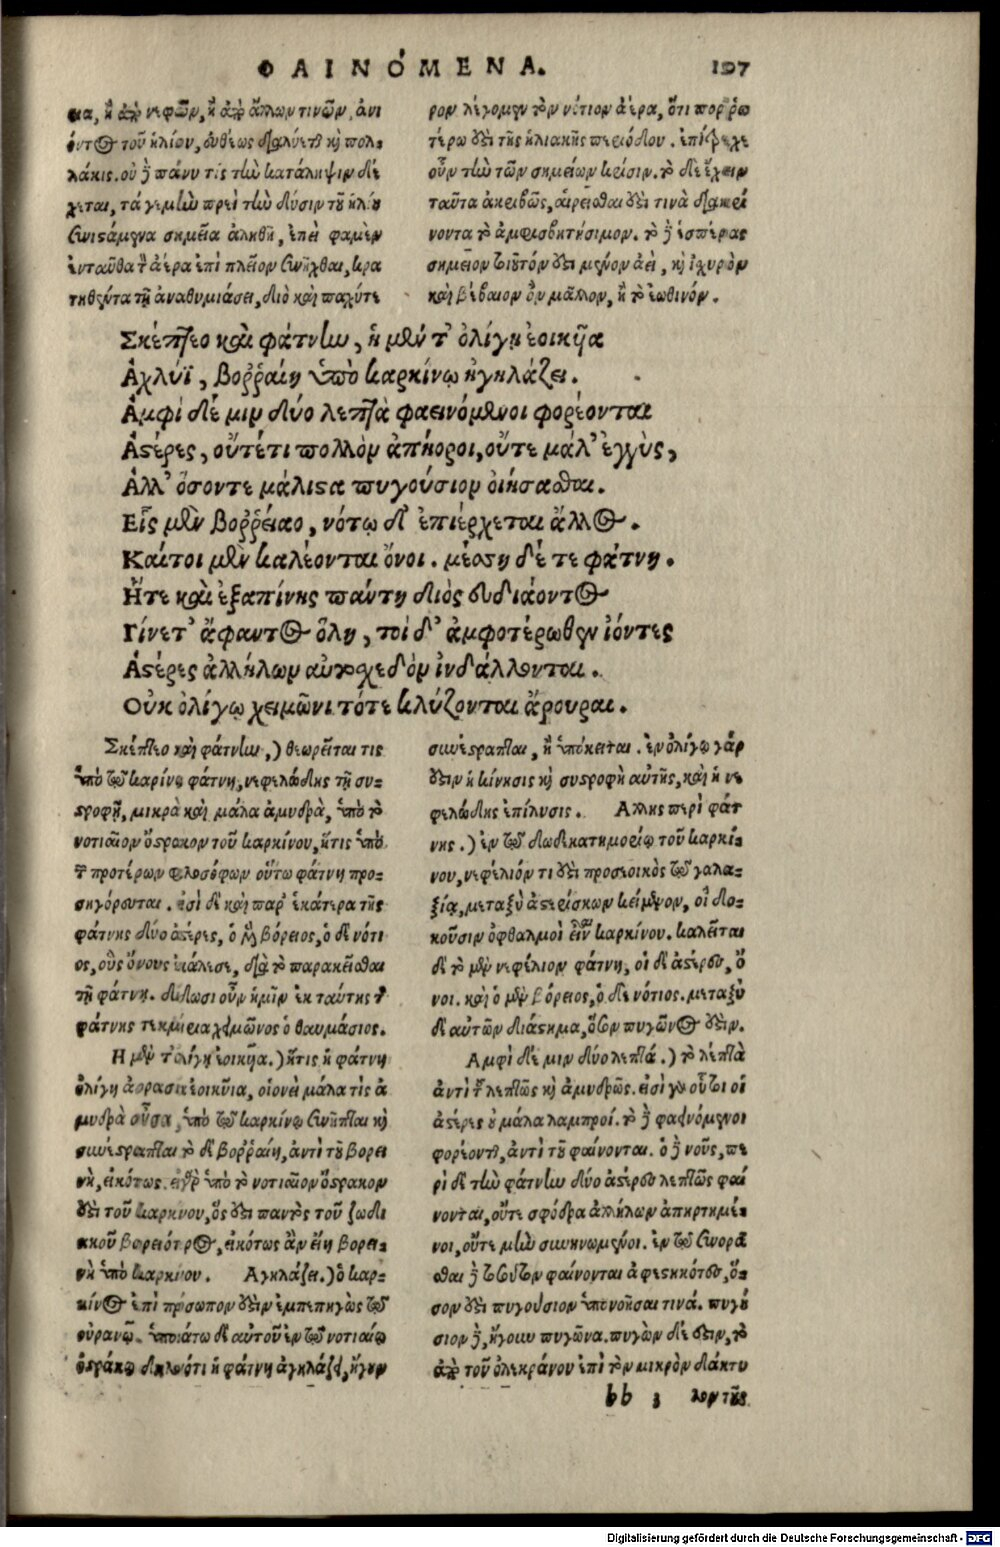 ΦΑΙΝΌΜΕΝΑ. 197
μα, ἢ ἀπὸ νεφῶν, ἢ ἀπὸ ἄλλων τινῶν, ἀνι
όντος τοῦ ἡλίου, εὐθέως διαλύεται καὶ πολ-
λάκις. οὐ δὲ πάνυ τὶς τὴν κατάληψιν δέ
χεται, τά γε μὴν περὶ τὴν δύσιν τοῦ ἡλίου
συνιστάμενα σημεῖα ἀληθῆ, ἐπεὶ φαμὲν
ἐνταῦθα τὸν ἀέρα ἐπὶ πλεῖον συνῆχθαι, κρα
τηθέντα τῇ ἀναθυμιάσει, διὸ καὶ παχύτε
ρον λέγομεν τὸν νότιον ἀέρα, ὅτι πορρω
τέρω ἐστὶ τῆς ἡλιακῆς περιόδου. ἐπίτρεχε
οὖν τὴν τῶν σημείων κείσιν. τὸ δὲ ἔχειν
ταῦτα ἀκριβῶς, αἱρεῖσθαι ἐστὶ τινὰ διακρί
νοντα τὸ ἀμφισβητήσιμον. τὸ δὲ ἑσπέρας
σημεῖον τοιοῦτόν ἐστι μένον ἀεὶ, καὶ ἰσχυρὸν
καὶ βέβαιον ὂν μᾶλλον, ἢ τὸ ἑωθινόν.
Σκέπτεο καὶ φάτνην, ἡ μέν τ' ὀλίγῃ ἐοικῆα
Ἀχλύϊ, βοῤῥαίη ὑπὸ καρκίνῳ ἠγηλάζει.
Ἀμφὶ δέ μιν δύο λεπτὰ φαεινόμενοι φορέονται
Ἀστέρες, οὔτέτι πολλὸν ἀπήοροι, οὔτε μάλ' ἐγγὺς,
Ἀλλ' ὅσοντε μάλιστα πυγούσιον οἰήσασθαι.
Εἷς μὲν βοῤῥείαο, νότῳ δ' ἐπιέρχεται ἄλλος.
Καίτοι μὲν καλέονται ὄνοι. μέσση δέ τε φάτνη.
Ἥτε καὶ ἐξαπίνης πάντῃ διὸς εὐδιάοντος
Γίνετ' ἄφαντος ὅλη, τοὶ δ' ἀμφοτέρωθεν ἰόντες
Ἀστέρες ἀλλήλων αὐτοσχεδὸν ἰνδάλλονται.
Οὐκ ὀλίγῳ χειμῶνι τότε κλύζονται ἄρουραι.
Σκέπτεο καὶ φάτνην,) θεωρεῖται τις
ὑπὸ τῷ καρίνῳ φάτνη, νεφελώδης τῇ συ-
στροφῇ, μικρὰ καὶ μάλα ἀμυδρὰ, ὑπὸ τὸ
νοτιαῖον ὄστρακον τοῦ καρκίνου, ἥτις ὑπὸ
τῶν προτέρων φιλοσόφων οὕτω φάτνη προ-
σηγόρευται. εἰσὶ δὲ καὶ παρ' ἑκάτερα τῆς
φάτνης δύο ἀστέρες, ὁ μὲν βόρειος, ὁ δὲ νότι
ος, οὓς ὄνους ἐκάλεσε, διὰ τὸ παρακεῖσθαι
τῇ φάτνῃ. δίδωσι οὖν ἡμῖν ἐκ ταύτης τῆς
φάτνης τεκμήρια χειμῶνος ὁ θαυμάσιος.
Ἡ μὲν τ' ὀλίγῃ ἐοικῆα.) ἥτις ἡ φάτνη
ὀλίγῃ ἀορασίᾳ ἐοικυῖα, οἱονεὶ μάλα τὶς ἀ
μυδρὰ οὖσα, ὑπὸ τῷ καρκίνῳ συνῆπται καὶ
συνέστραπται τὸ δὲ βοῤῥαίη, ἀντὶ τοῦ βορει
νὴ, εἰκότως. εἰ γὰρ ὑπὸ τὸ νοτιαῖον ὄστρακον
ἐστὶ τοῦ καρκίνου, ὅς ἐστι παντὸς τοῦ ζωδι
ακοῦ βορειότερος, εἰκότως ἂν εἴη βορει-
νὴ ὑπὸ καρκίνου. Ἀγηλάζει.) ὁ καρ-
κίνος ἐπὶ πρόσωπον ἐστὶν ἐμπεπηγὼς τῷ
οὐρανῷ. ὑποκάτω δὲ αὐτοῦ ἐν τῷ νοτιαίῳ
ὀστράκῳ δηλονότι ἡ φάτνη ἀγηλάζει, ἤγουν
συνέστραπται, ἢ ὑπόκειται. ἐν ὀλίγῳ γάρ
ἐστιν ἡ κίνησις καὶ συστροφὴ αὐτῆς, καὶ ἡ νε
φελώδης ἐπίλυσις. Ἄλλης περὶ φάτ
νης.) ἐν τῷ δωδεκατημορίῳ τοῦ καρκί-
νου, νεφέλιόν τι ἐστὶ προσεοικὸς τῷ γαλα-
ξίᾳ, μεταξὺ ἀστερίσκων κείμενον, οἳ δο-
κοῦσιν ὀφθαλμοὶ εἶναι καρκίνου. καλεῖται
δὲ τὸ μὲν νεφέλιον φάτνη, οἱ δὲ ἀστέρες, ὄ
νοι. καὶ ὁ μὲν βόρειος, ὁ δὲ νότιος. μεταξὺ
δὲ αὐτῶν διάστημα, ὅσον πυγῶνος ἐστίν.
Ἀμφὶ δέ μιν δύο λεπτά.) τὸ λεπτὰ
ἀντὶ τοῦ λεπτῶς καὶ ἀμυδρῶς. εἰσὶ γὰρ οὗτοι οἱ
ἀστέρες οὐ μάλα λαμπροί. τὸ δὲ φαεινόμενοι
φορέονται, ἀντὶ τοῦ φαίνονται. ὁ δὲ νοῦς, πε
ρὶ δὲ τὴν φάτνην δύο ἀστέρες λεπτῶς φαί
νονται, οὔτε σφόδρα ἀλλήλων ἀπηρτημέ-
νοι, οὔτε μὴν συνηνωμένοι. ἐν τῷ συνορᾶ
σθαι δὲ τοσοῦτον φαίνονται ἀφεστηκότες, ὅ-
σον ἐστὶ πυγούσιον ὑπονοῆσαι τινά. πυγού
σιον δὲ, ἤγουν πυγῶνα. πυγὼν δέ ἐστιν, τὸ
ἀπὸ τοῦ ὀλεκράνου ἐπὶ τὸν μικρὸν δάκτυ
bb 3 λον τῆς
Digitalisierung gefördert durch die Deutsche Forschungsgemeinschaft - DFG